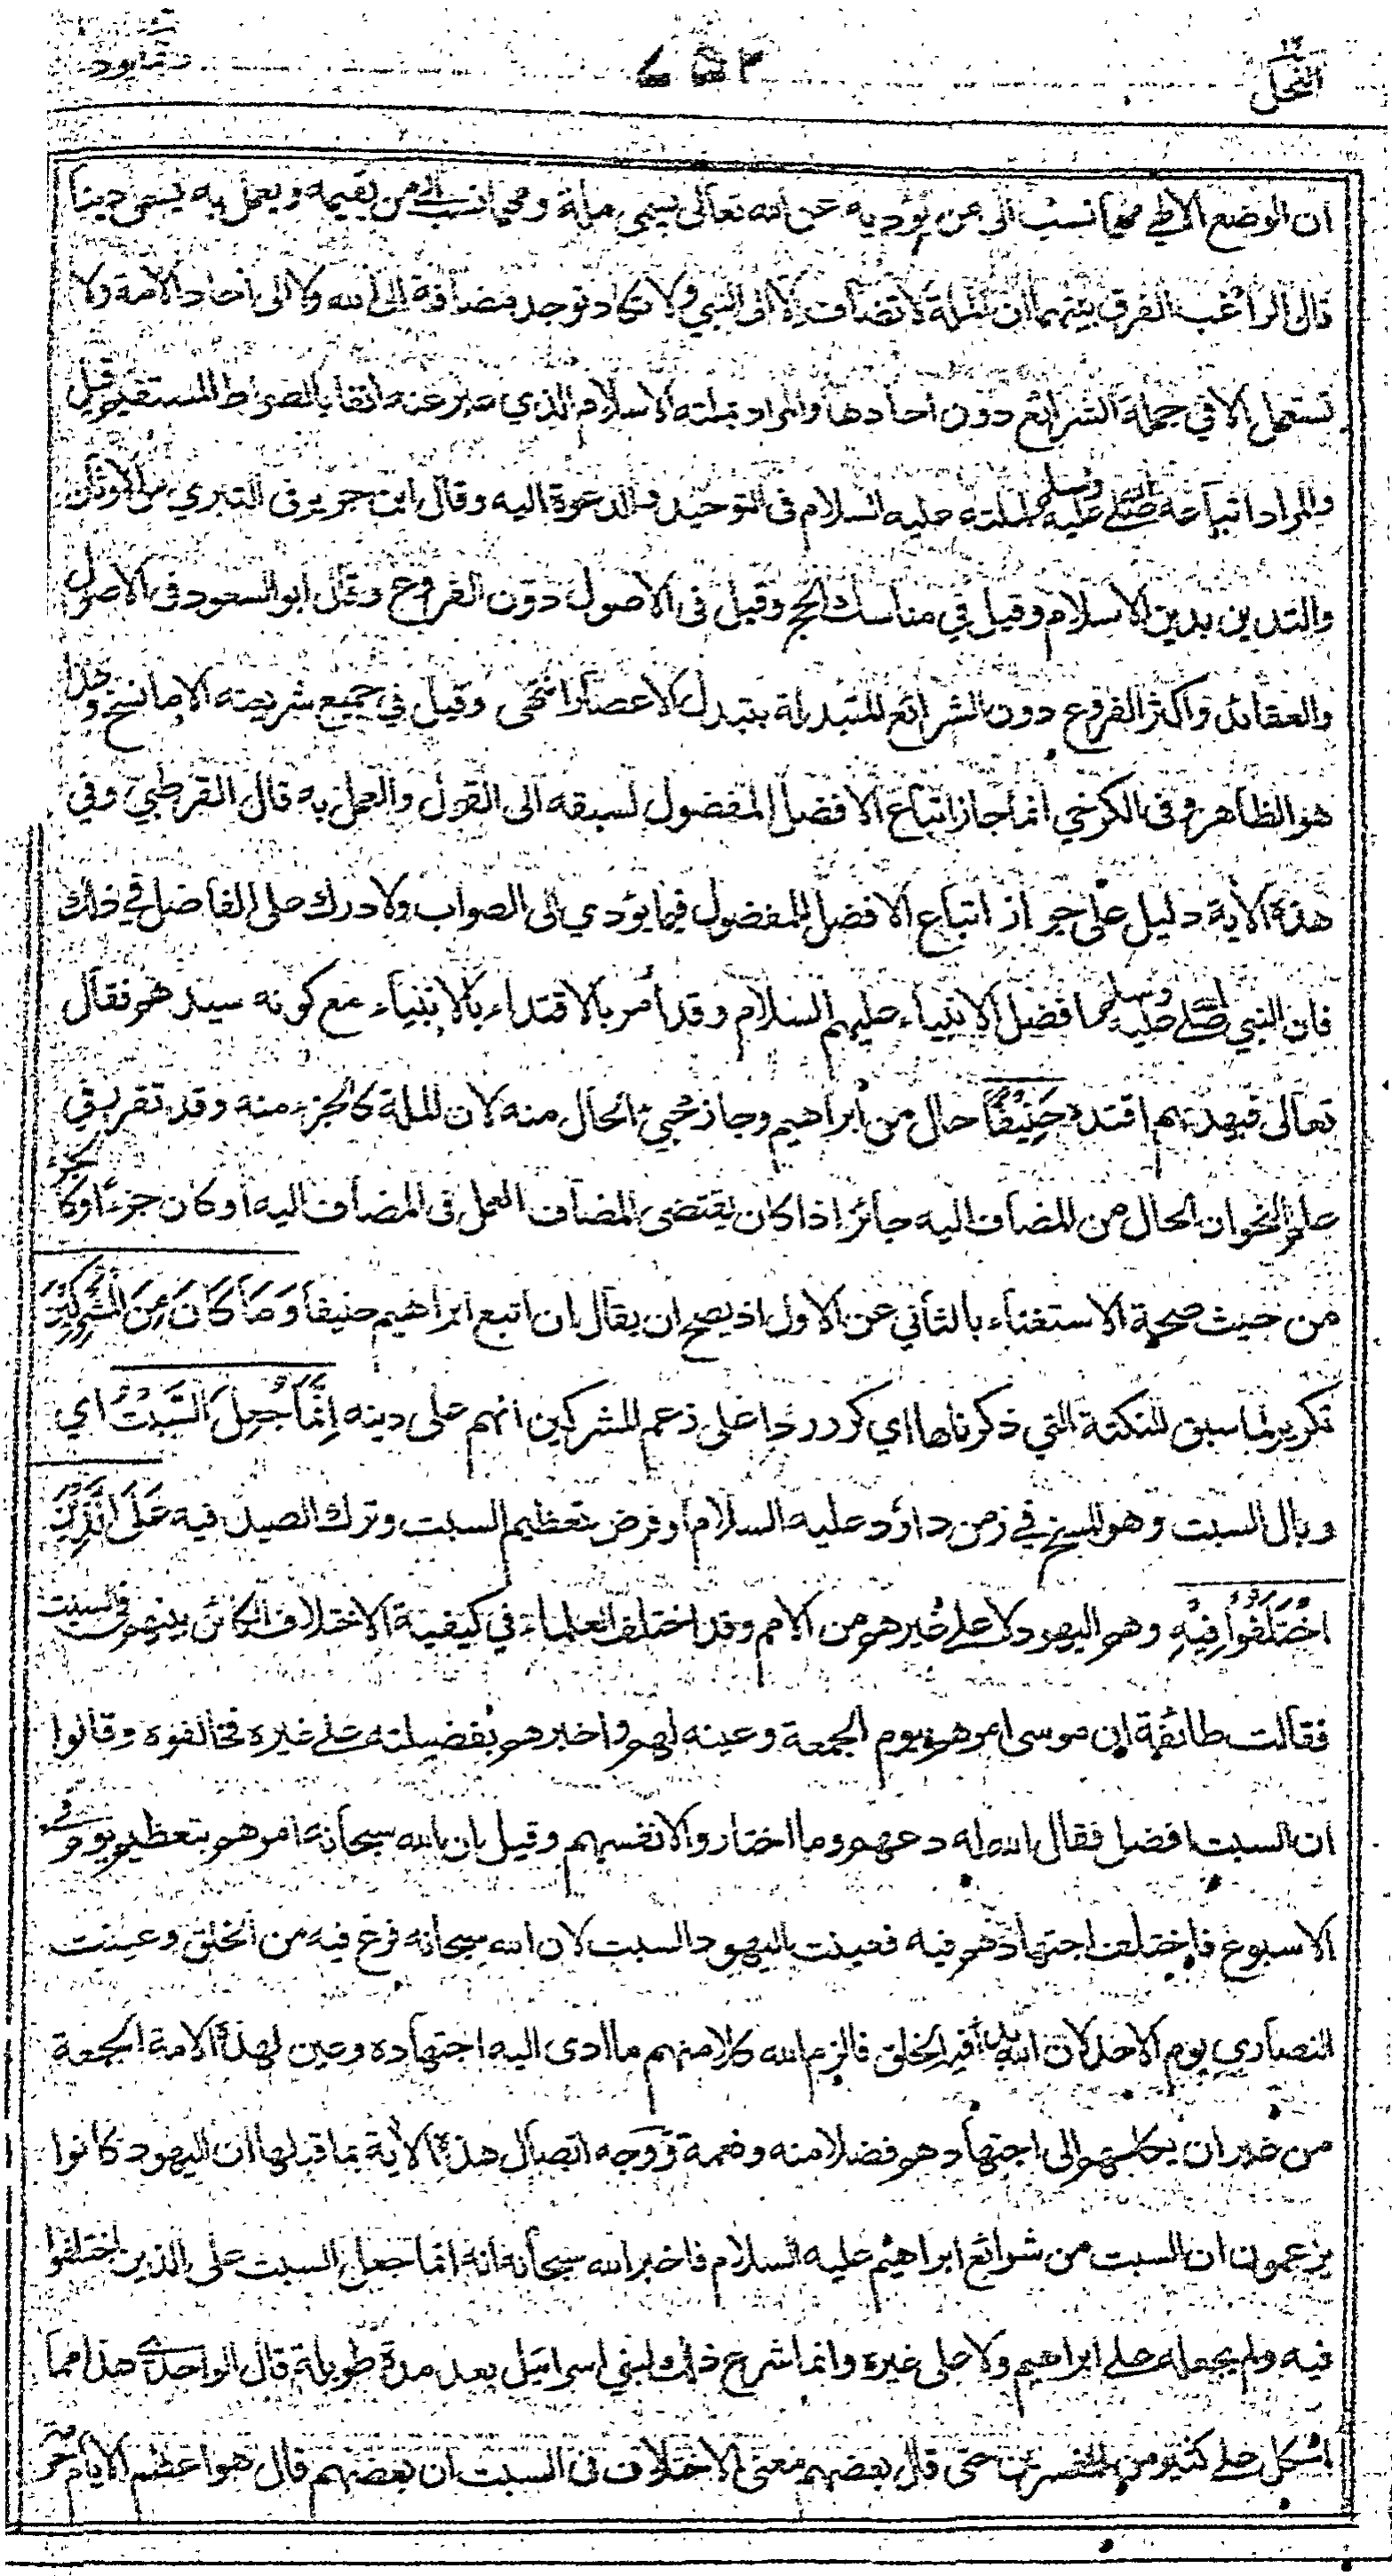 النحل ٧٥٢ ربما يود
ان الوضع الالهي مهما نسب الى من يؤديه عن الله تعالى يسمى ملة ومهما نسب الى من يقيمه ويعمل به يسمى دينا
قال الراغب الفرق بينهما ان الملة لا تضاف الا الى النبي ولا تكاد توجد مضافة الى الله ولا الى احاد الامة ولا
تستعمل الا في جملة الشرائع دون احادها والمراد بملته الاسلام الذي عبر عنه انفا بالصراط المستقيم وقيل
والمراد اتباعه صلى الله عليه وسلم لملته عليه السلام في التوحيد والدعوة اليه وقال ابن جرير في التبري من الاوثان
والتدين بدين الاسلام وقيل في مناسك الحج وقيل في الاصول دون الفروع وقال ابو السعود في الاصول
والعقائد واكثر الفروع دون الشرائع المتبدلة بتبدل الاعصار انتهى وقيل في جميع شريعته الا ما نسخ وهذا
هو الظاهر وفي الكرخي انما جاز اتباع الافضل المفضول لسبقه الى القول والعمل به قال القرطبي وفي
هذه الاية دليل على جواز اتباع الافضل للمفضول فيما يؤدي الى الصواب ولا درك على الفاضل في ذلك
فان النبي صلى الله عليه وسلم افضل الانبياء عليهم السلام وقد أمر بالاقتداء بالانبياء مع كونه سيدهم فقال
تعالى فبهدىهم اقتده حَنِيْفًا حال من ابراهيم وجاز مجيئ الحال منه لان الملة كالجزء منه وقد تقرر في
علم النحو ان الحال من المضاف اليه جائز اذا كان يقتضى المضاف العمل في المضاف اليه او كان جزءا او كالجزء
من حيث صحة الاستغناء بالثاني عن الاول اذ يصح ان يقال ان اتبع ابراهيم حنيفا وَمَا كَانَ مِنَ الْمُشْرِكِيْنَ
تكرير لما سبق للنكتة التي ذكرناها اي كرر ردا على زعم المشركين انهم على دينه اِنَّمَا جُعِلَ السَّبْتُ اي
وبال السبت وهو المسخ في زمن داؤد عليه السلام او فرض تعظيم السبت وترك الصيد فيه عَلَى الَّذِيْنَ
اخْتَلَفُوْا فِيْهِ وهم اليهود لا على غيرهم من الامم وقد اختلف العلماء في كيفية الاختلاف الكائن بينهم في السبت
فقالت طائفة ان موسى امرهم بيوم الجمعة وعينه لهم واخبرهم بفضيلته على غيره فخالفوه وقالوا
ان السبت افضل فقال الله له دعهم وما اختاروا لانفسهم وقيل ان الله سبحانه امرهم بتعظيم يوم في
الاسبوع فاختلف اجتهادهم فيه فعينت اليهود السبت لان الله سبحانه فرغ فيه من الخلق وعينت
النصارى يوم الاحد لان الله بدأ فيه الخلق فالزم الله كلا منهم ما ادى اليه اجتهاده وعين لهذه الامة الجمعة
من غير ان يكلهم الى اجتهادهم فضلا منه ونعمة ووجه اتصال هذه الاية بما قبلها ان اليهود كانوا
يزعمون ان السبت من شرائع ابراهيم عليه السلام فاخبر الله سبحانه انه انما جعل السبت على الذين اختلفوا
فيه ولم يجعله على ابراهيم ولا على غيره وانما شرع ذلك لبني اسرائيل بعد مدة طويلة قال الواحدي هذا مما
اشكل على كثير من المفسرين حتى قال بعضهم معنى الاختلاف في السبت ان بعضهم قال هو اعظم الايام حرمة